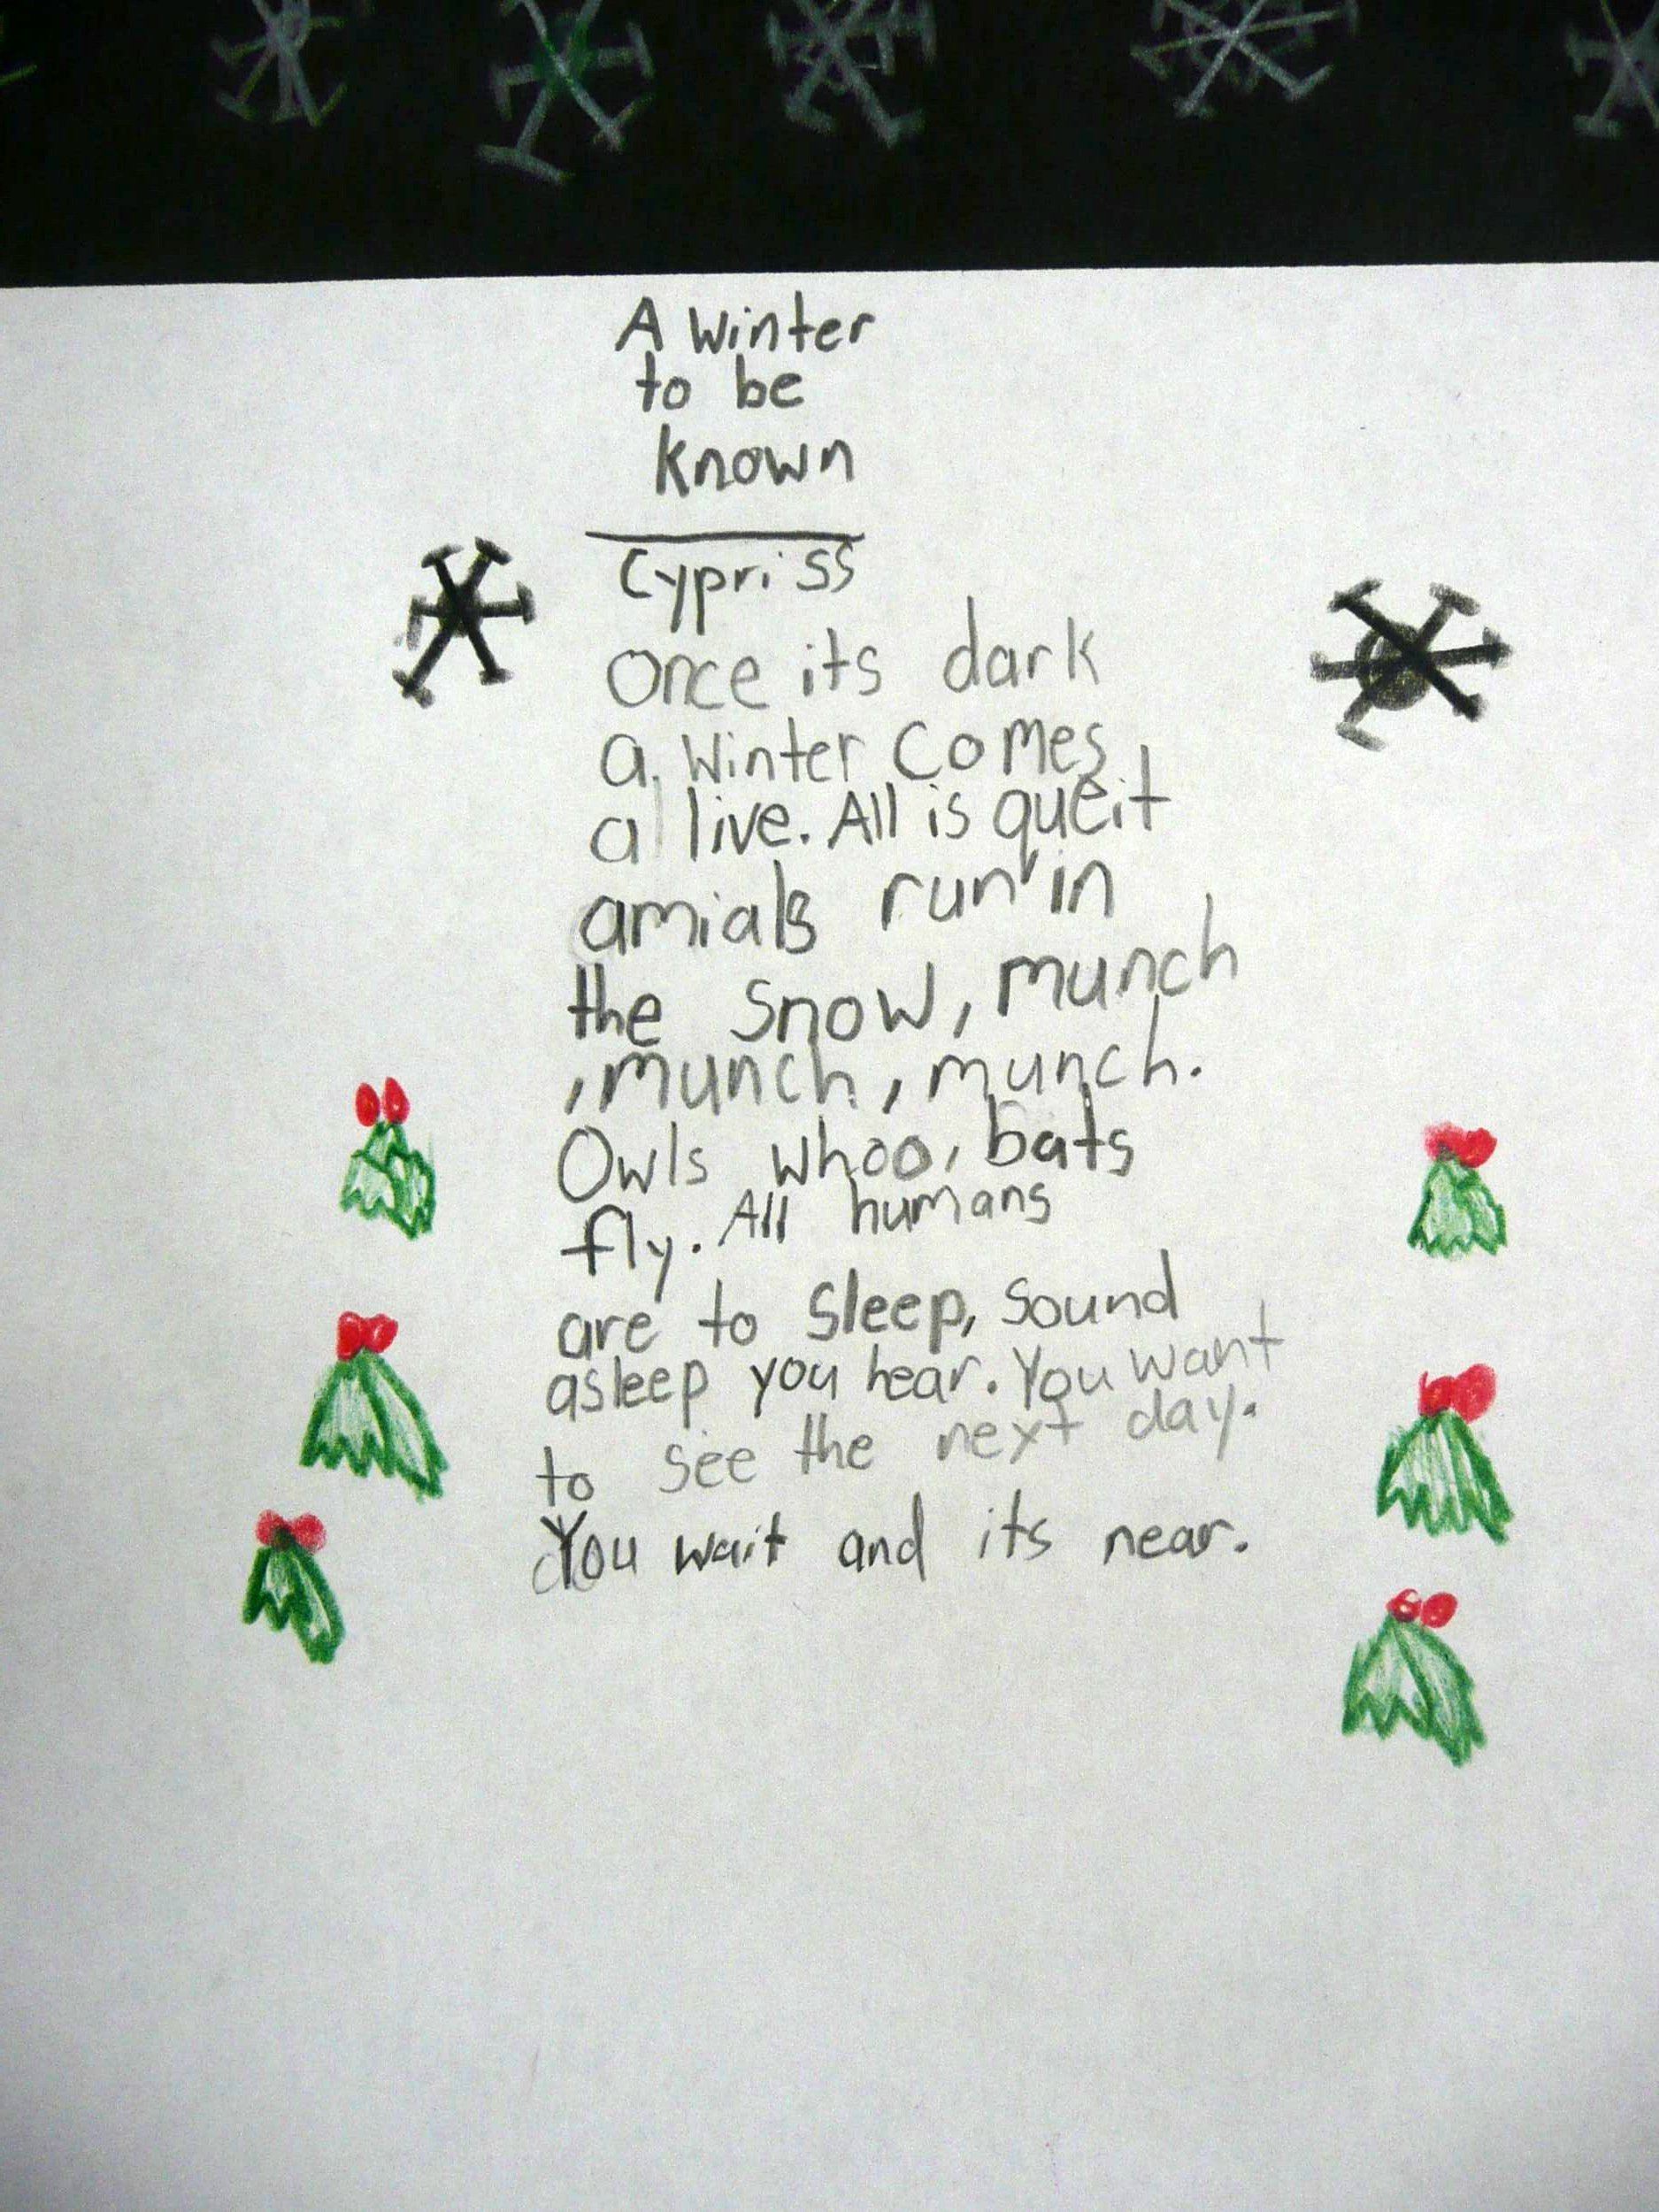 A Winter
to be
known
Cypriss
Once its dark
a winter comes
a live. All is queit
amials run in
the snow, munch
, munch, munch.
Owls whoo, bats
fly. All humans
are to sleep, sound
asleep you hear. You want
to see the next day.
You wait and its near.